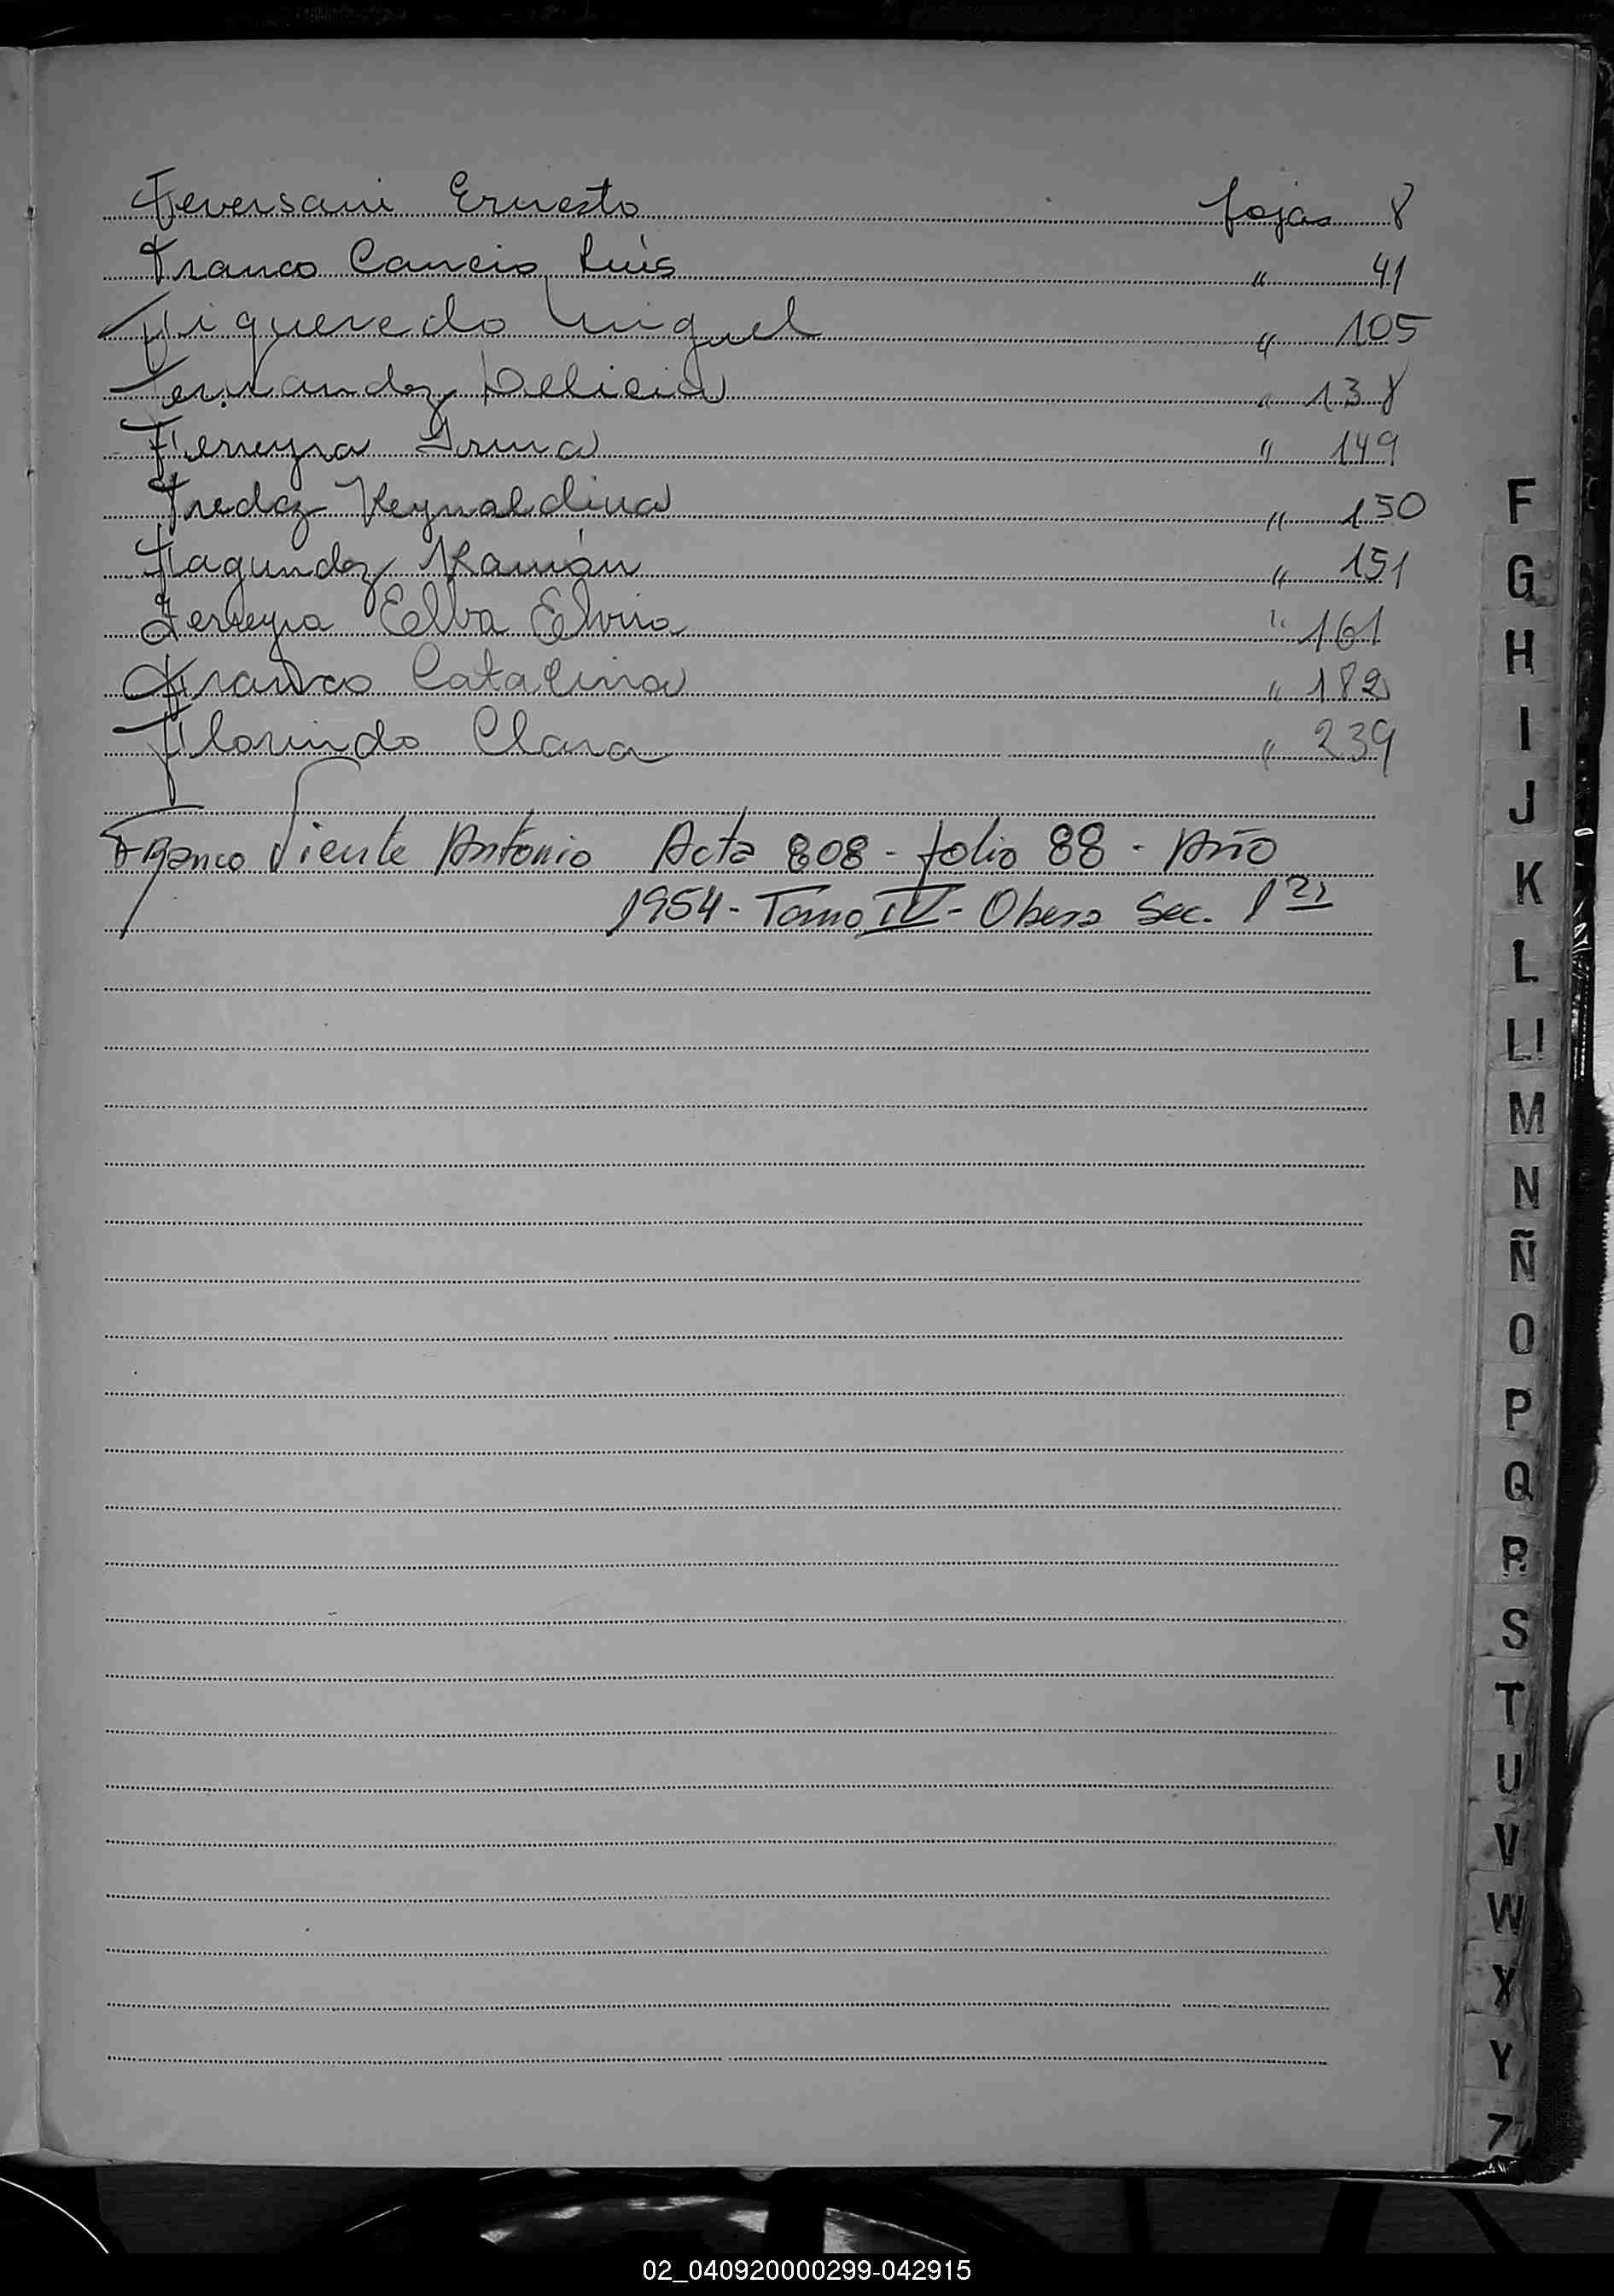 Feversani Ernesto fojas 8
Franco Cancio Luis " 41
Figueredo Miguel " 105
Fernandez Delicia " 138
Ferreyra Irma " 149
Fredez Reynaldina " 150
Fagundez Ramón " 151
Ferreyra Elba Elvira " 161
Franco Catalina " 182
Florindo Clara " 239
Franco Antonio Acta 808 - folio 88 - Año
1954 - Tomo IV - Obera Sec. 1ra
F
G
H
I
J
K
L
Ll
M
N
Ñ
O
P
Q
R
S
T
U
V
W
X
Y
Z
02_040920000299-042915